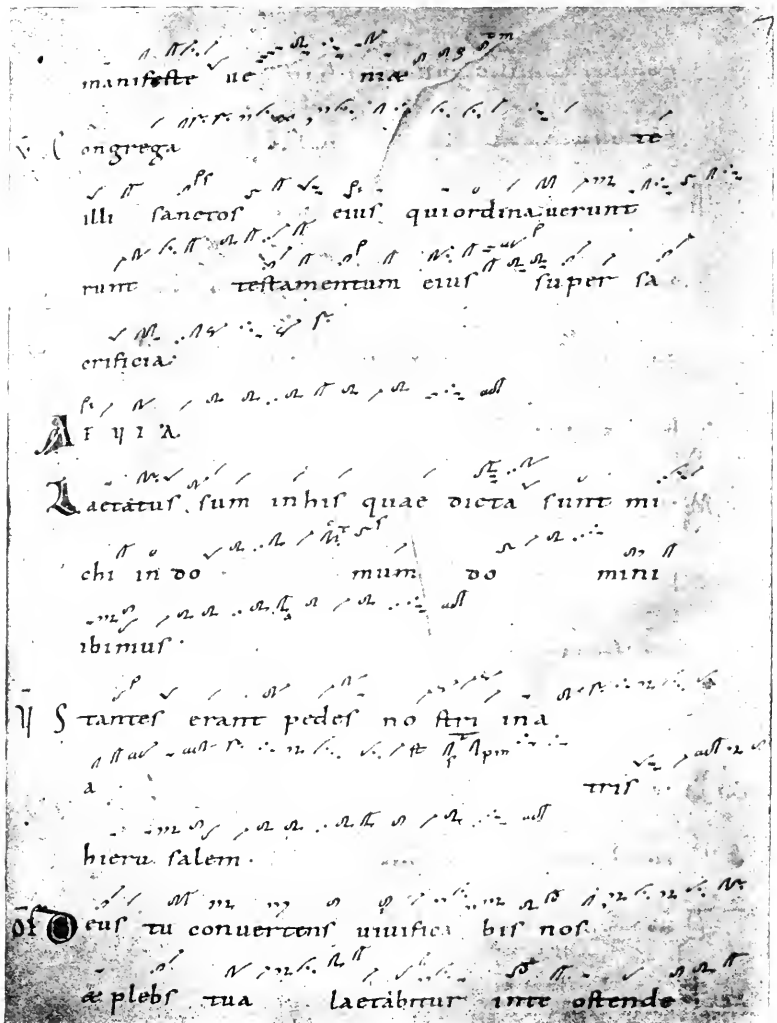 manifeste ue niæ
V Congrega te
illi sanctos eius qui ordinauerunt
runt testamentum eius super sa
crificia
AEVIA
Laetatus sum in his quae dicta sunt mi
chi in do mum do mini
ibimus
V Stantes erant pedes no stri in a
a tris
hieru salem
Of Deus tu convertens uiuifica bis nos
æ plebs tua laetabitur in te ostende